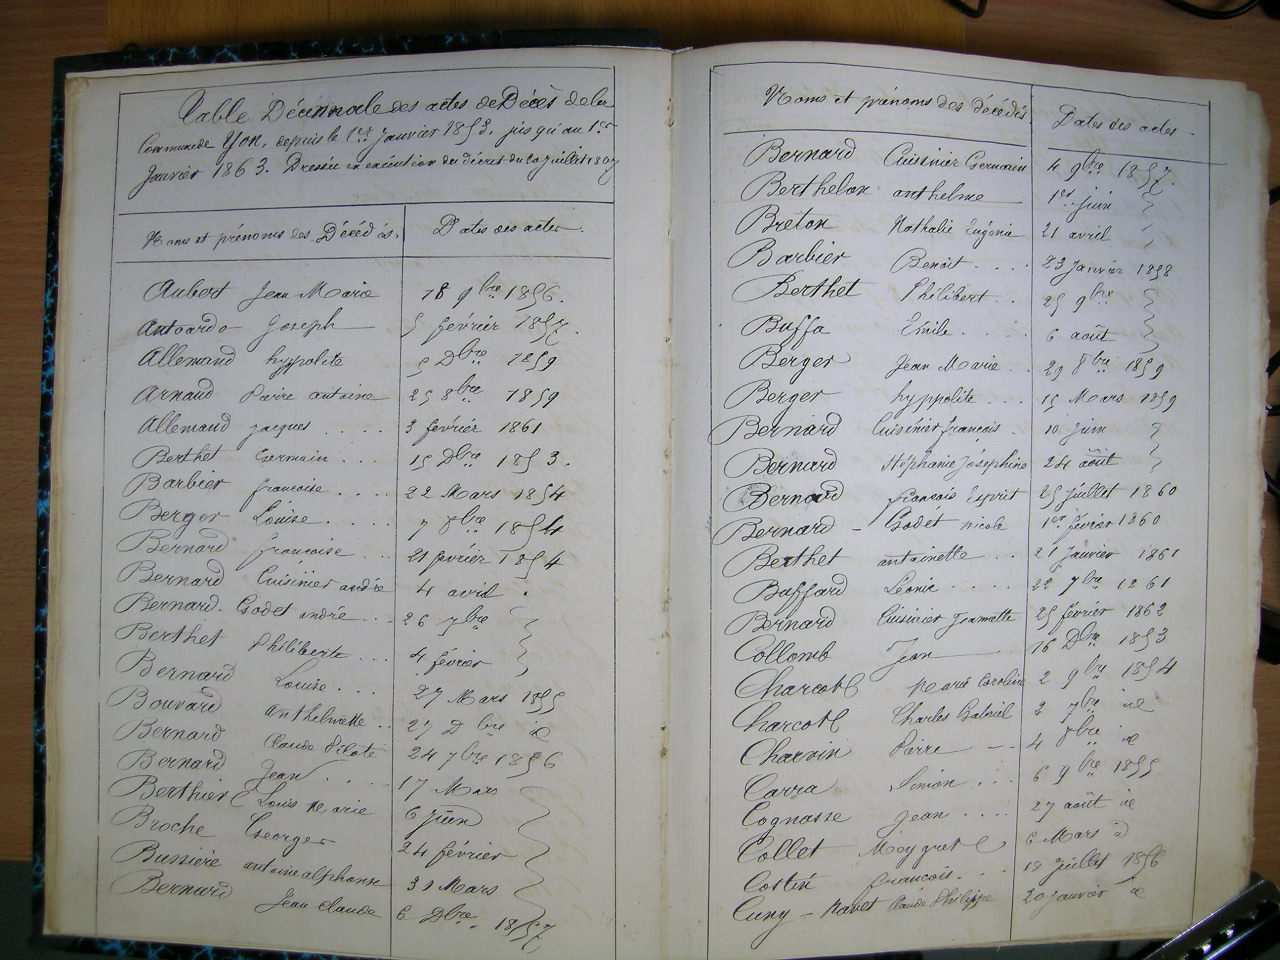 Table Décennale des actes de Décès de la
Commune de Yon, depuis le 1er Janvier 1853, jusqu'au 1er
Janvier 1863. Dressée en exécution du décret du 20 Juillet 1807
Noms et prénoms des Décédés. Dates des actes.
Aubert Jean Marie 18 9bre 1856.
Antoardo Joseph 5 février 1857.
Allemand hyppolite 5 Dbre 1859
Arnaud Pierre antoine 25 8bre 1859
Allemand jacques .... 3 février 1861
Berthet Germain ... 15 Dbre 1853.
Barbier françoise .... 22 Mars 1854
Berger Louise .... 7 8bre 1854
Bernard françoise ... 21 février 1854
Bernard Cuisinier andré 4 avril "
Bernard-Godet andré ... 26 7bre "
Berthet Philiberte ... 4 février "
Bernard Louise ... 27 Mars 1855
Bouvard anthelmette .. 27 Dbre id
Bernard Claude Pilate 24 7bre 1856
Bernard Jean .... 17 Mars "
Berthier Louis Marie 6 juin "
Broche Georges 24 février "
Bussière antoine alphonse 31 Mars "
Bernard Jean Claude 6 Dbre 1857
Noms et prénoms des décédés Dates des actes
Bernard Cuisinier Germain 4 9bre 1857.
Berthelon anthelme 1er juin "
Breton Nathalie Eugénie 21 avril "
Barbier Benoit .... 23 Janvier 1858
Berthet Philibert .. 25 9bre "
Buffa Emile .... 6 août "
Berger Jean Marie .. 29 8bre 1859
Berger hyppolite ... 15 Mars 1859
Bernard Cuisinier françois . 10 Juin "
Bernard Stéphanie Joséphine 24 août "
Bernard françois Esprit 25 Juillet 1860
Bernard - Godet nicole 1er février 1860
Berthet antoinette ... 21 Janvier 1861
Buffard Léonie .... 22 7bre 1861
Bernard Cuisinier Jeannette 25 février 1862
Collomb Jean 16 Dbre 1853
Charcot Marie Caroline 2 9bre 1854
Charcot Charles Gabriel 3 7bre id
Charvin Pierre 4 8bre id
Carra Simon ... 6 9bre 1855
Cognasse Jean .... 27 août id
Collet Meygret 6 Mars id
Cottin françois ... 18 Juillet 1856
Cuny - Ravet Claude Philippe 20 Janvier id